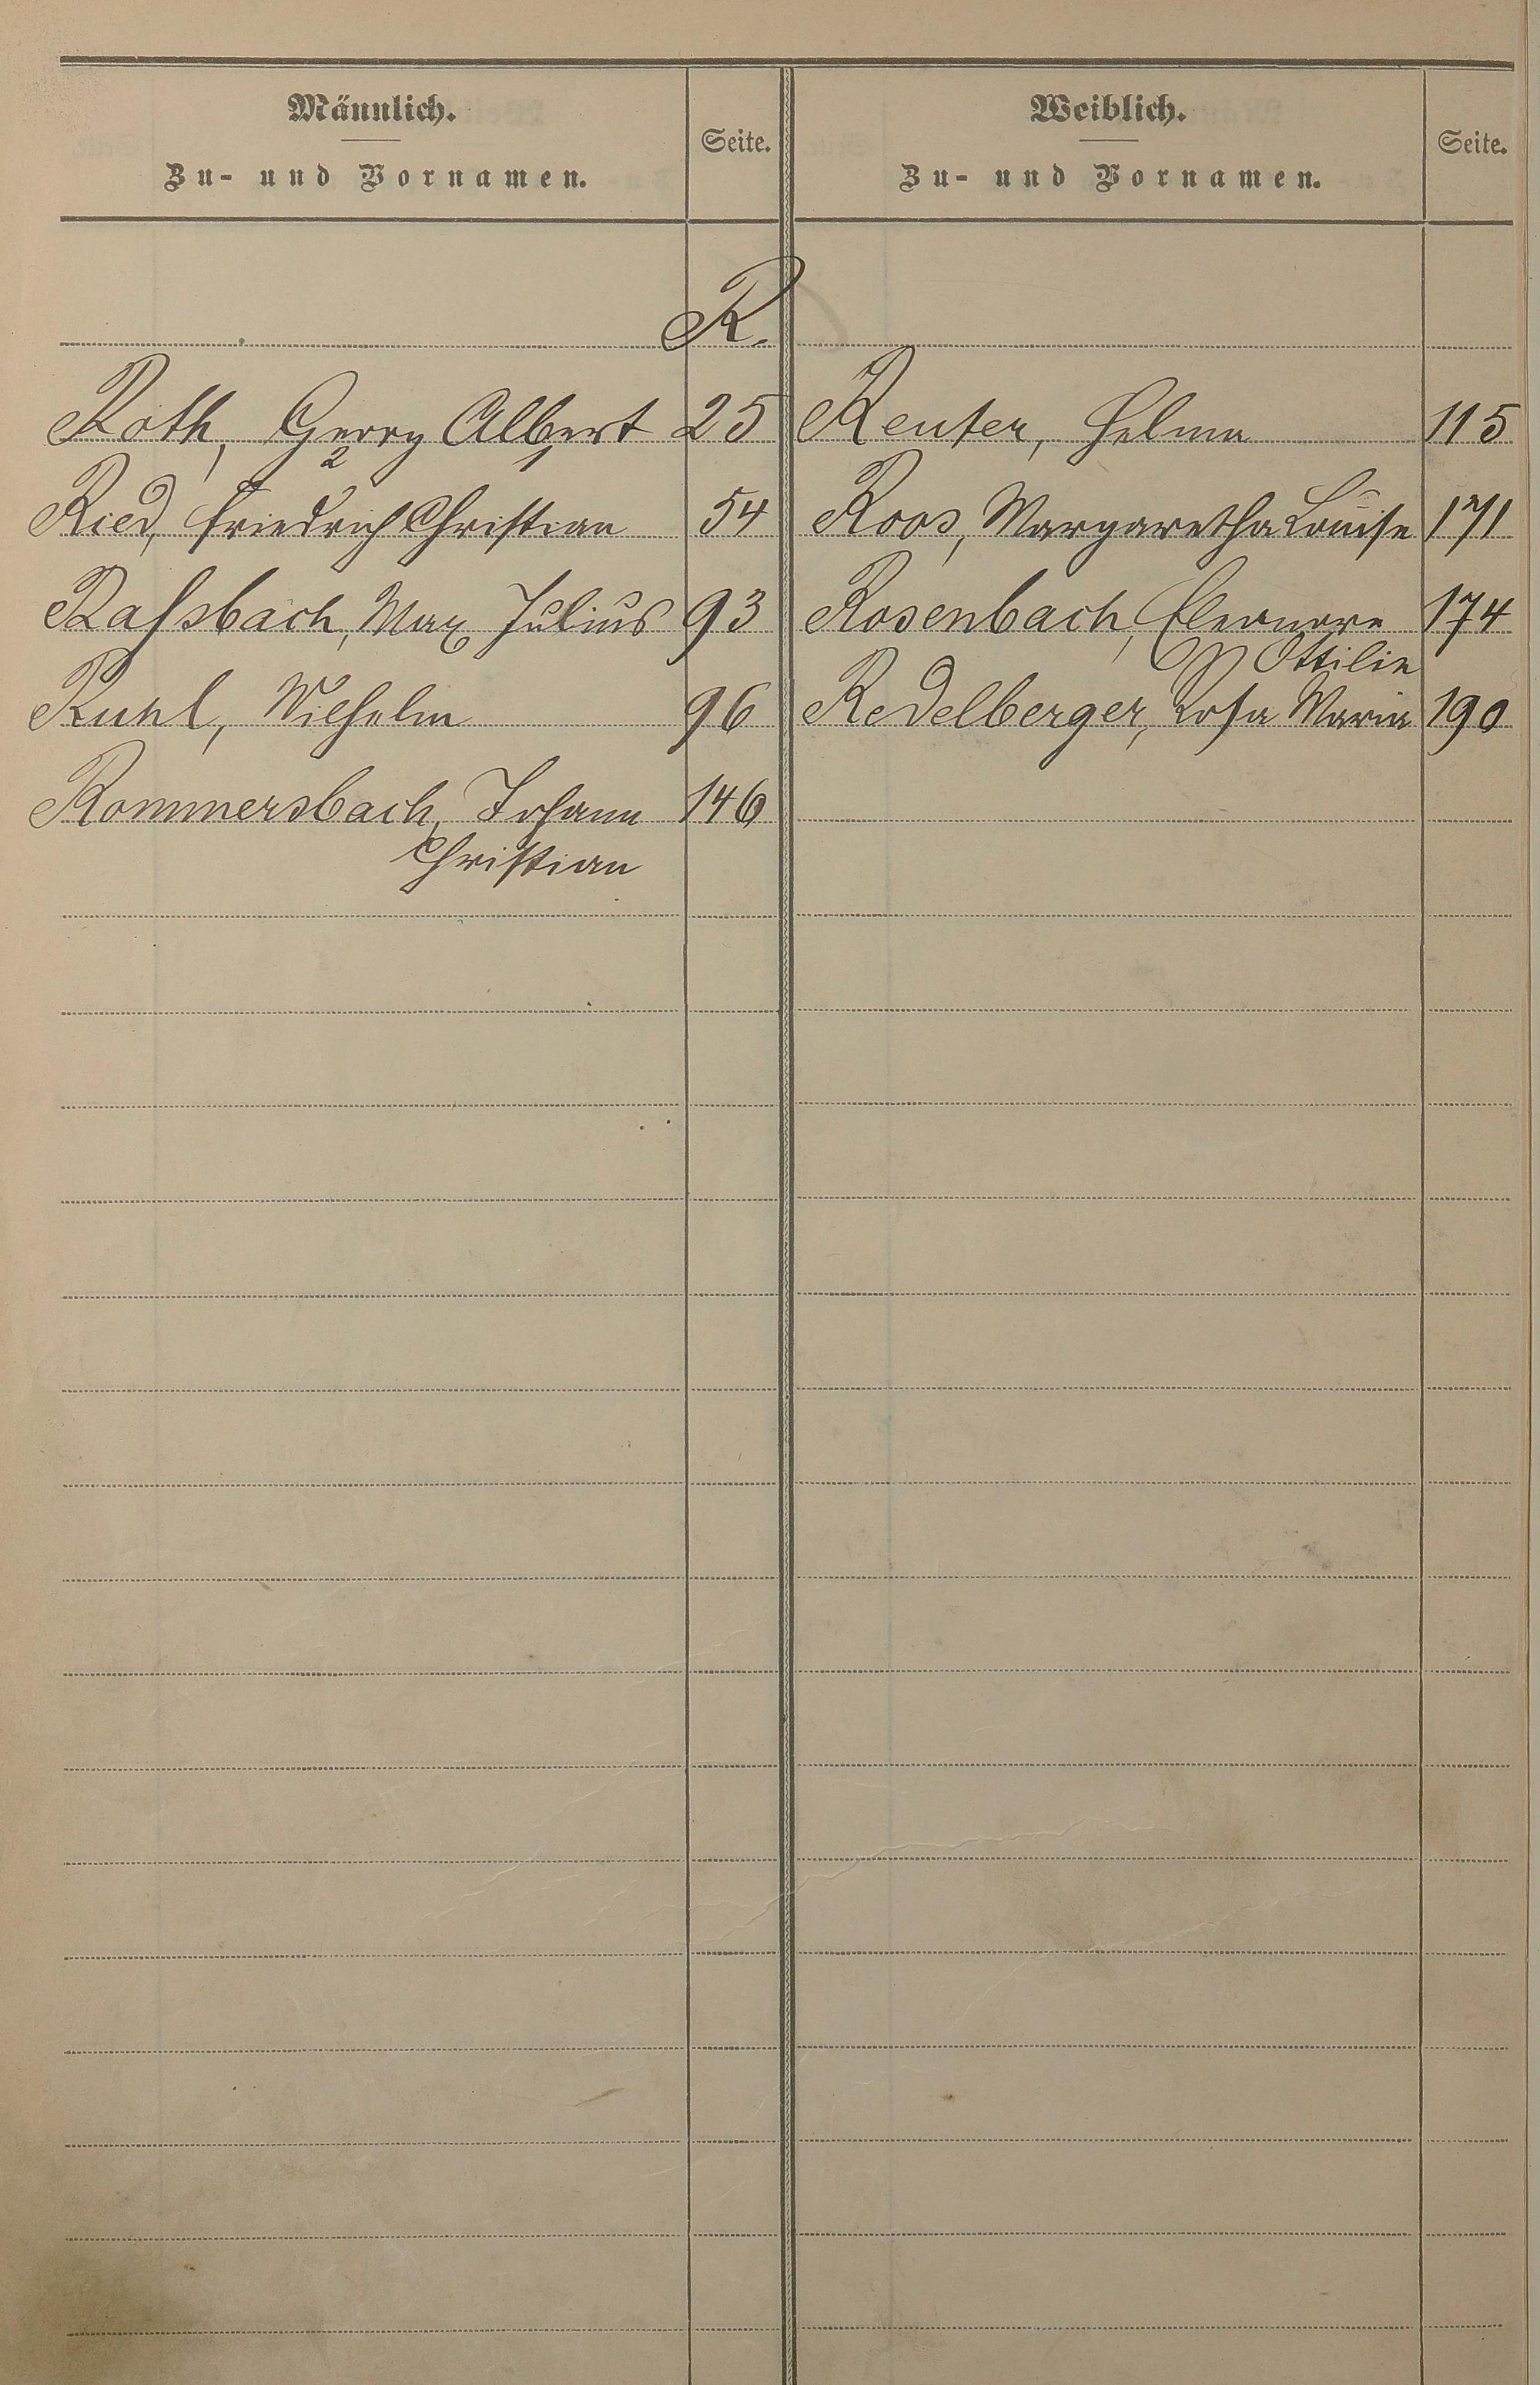 Männlich.
Zu- und Vornamen.
Seite.
Weiblich.
Zu- und Vornamen.
Seite.
R.
Roth, Georg Albert 25
2 1
Ried, Friedrich Christian 54
Raßbach, Max Julius 93
Ruhl, Wilhelm 96
Rommersbach, Johann 146
Christian
Reuter, Helma 115
Roos, Margaretha Louise 171
Rosenbach, Eleonore 174
Ottilie
Redelberger, Rosa Maria 190